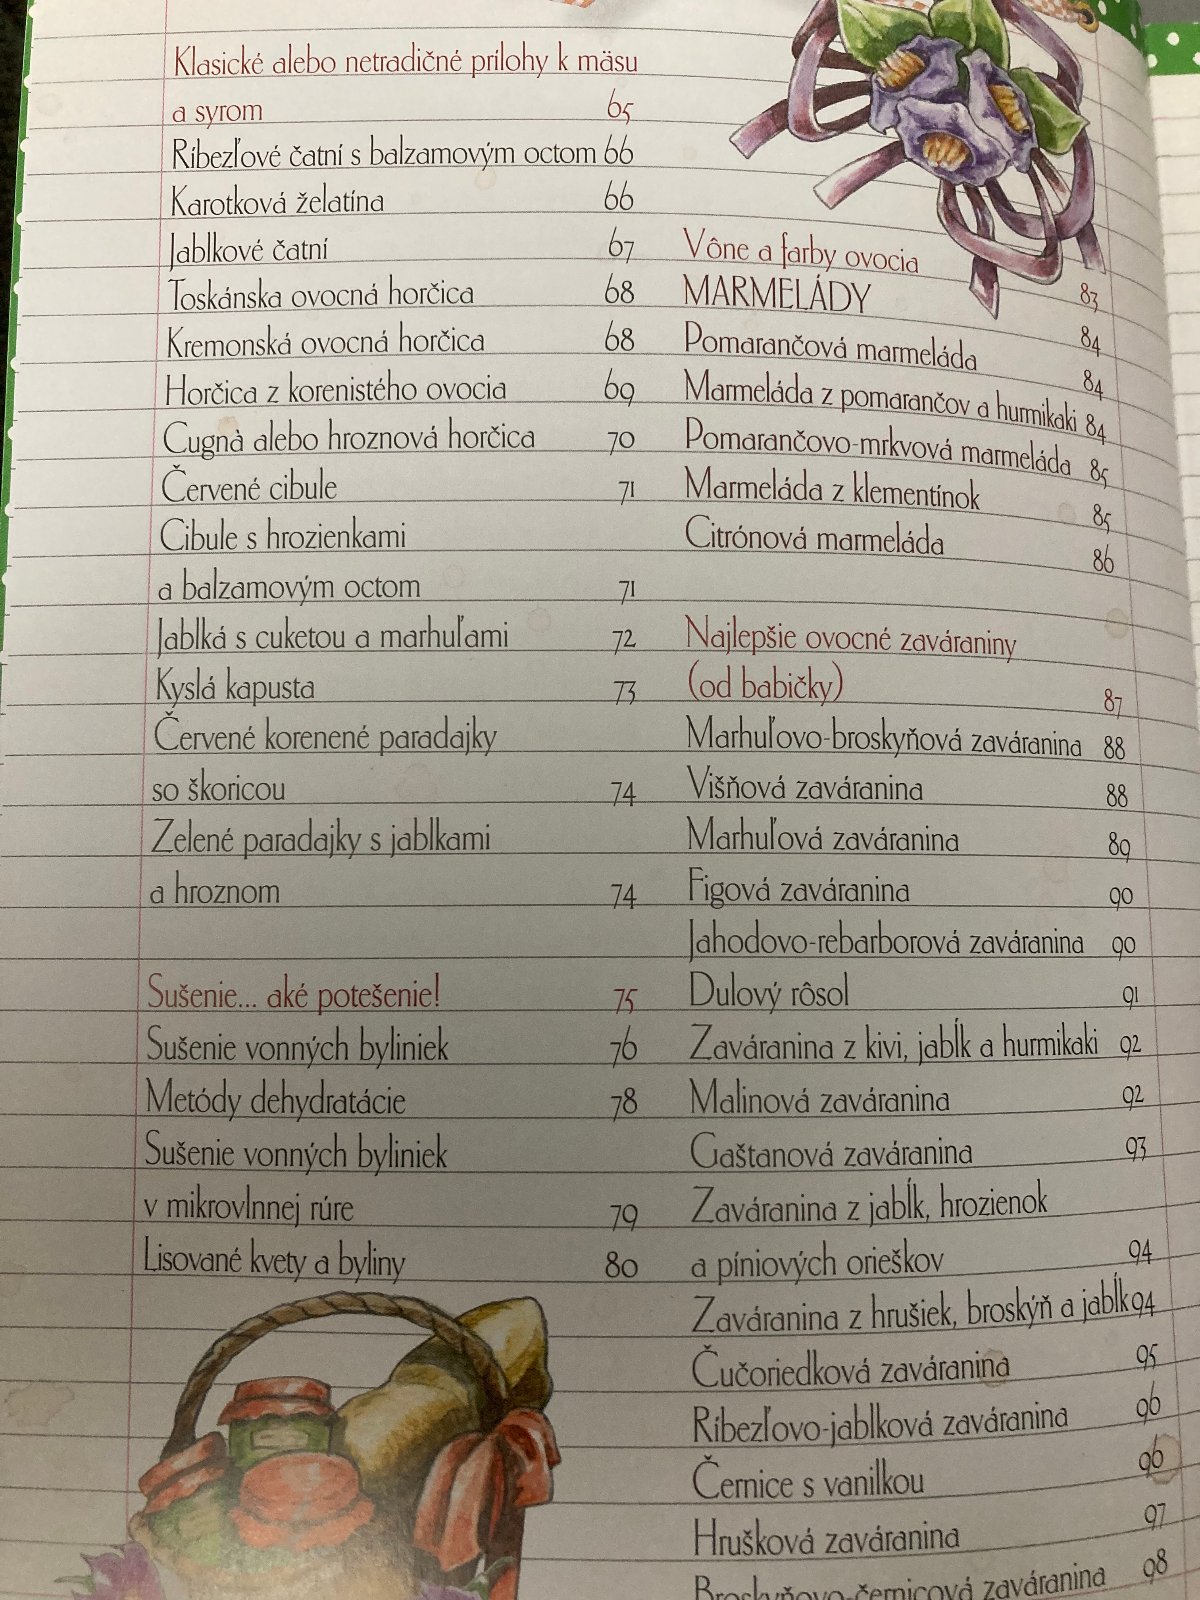 Klasické alebo netradičné prílohy k mäsu
a syrom 65
Ríbezľové čatní s balzamovým octom 66
Karotková želatína 66
Jablkové čatní 67
Toskánska ovocná horčica 68
Kremonská ovocná horčica 68
Horčica z korenistého ovocia 69
Cugnà alebo hroznová horčica 70
Červené cibule 71
Cibule s hrozienkami
a balzamovým octom 71
Jablká s cuketou a marhuľami 72
Kyslá kapusta 73
Červené korenené paradajky
so škoricou 74
Zelené paradajky s jablkami
a hroznom 74
Sušenie... aké potešenie! 75
Sušenie vonných byliniek 76
Metódy dehydratácie 78
Sušenie vonných byliniek
v mikrovlnnej rúre 79
Lisované kvety a byliny 80
Vône a farby ovocia 83
MARMELÁDY 84
Pomarančová marmeláda 84
Marmeláda z pomarančov a hurmikaki 84
Pomarančovo-mrkvová marmeláda 85
Marmeláda z klementínok 85
Citrónová marmeláda 86
Najlepšie ovocné zaváraniny
(od babičky) 87
Marhuľovo-broskyňová zaváranina 88
Višňová zaváranina 88
Marhuľová zaváranina 89
Figová zaváranina 90
Jahodovo-rebarborová zaváranina 90
Dulový rôsol 91
Zaváranina z kivi, jabĺk a hurmikaki 92
Malinová zaváranina 92
Gaštanová zaváranina 93
Zaváranina z jabĺk, hrozienok
a píniových orieškov 94
Zaváranina z hrušiek, broskýň a jabĺk 94
Čučoriedková zaváranina 95
Ríbezľovo-jablková zaváranina 96
Černice s vanilkou 96
Hrušková zaváranina 97
Broskyňovo-černicová zaváranina 98